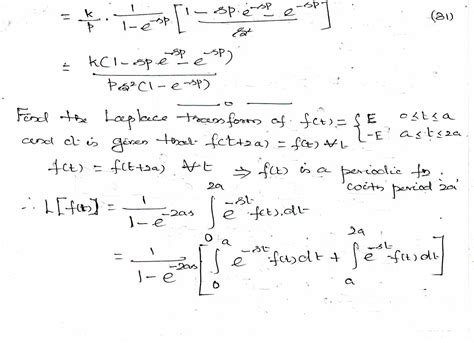 = k/p · 1/(1-e^-sp) [ (1-sp·e^-sp - e^-sp) / s² ] (31)
= k(1-sp·e^-sp - e^-sp) / ps²(1-e^-sp)
Find the Laplace transform of f(t) = { E 0≤t≤a
and it is given that f(t+2a) = f(t) ∀t { -E a≤t≤2a
f(t) = f(t+2a) ∀t ⇒ f(t) is a periodic fn
with period 2a
∴ L[f(t)] = 1/(1-e^-2as) ∫₀^2a e^-st f(t)·dt
= 1/(1-e^-2as) [ ∫₀^a e^-st f(t) dt + ∫ₐ^2a e^-st f(t) dt ]